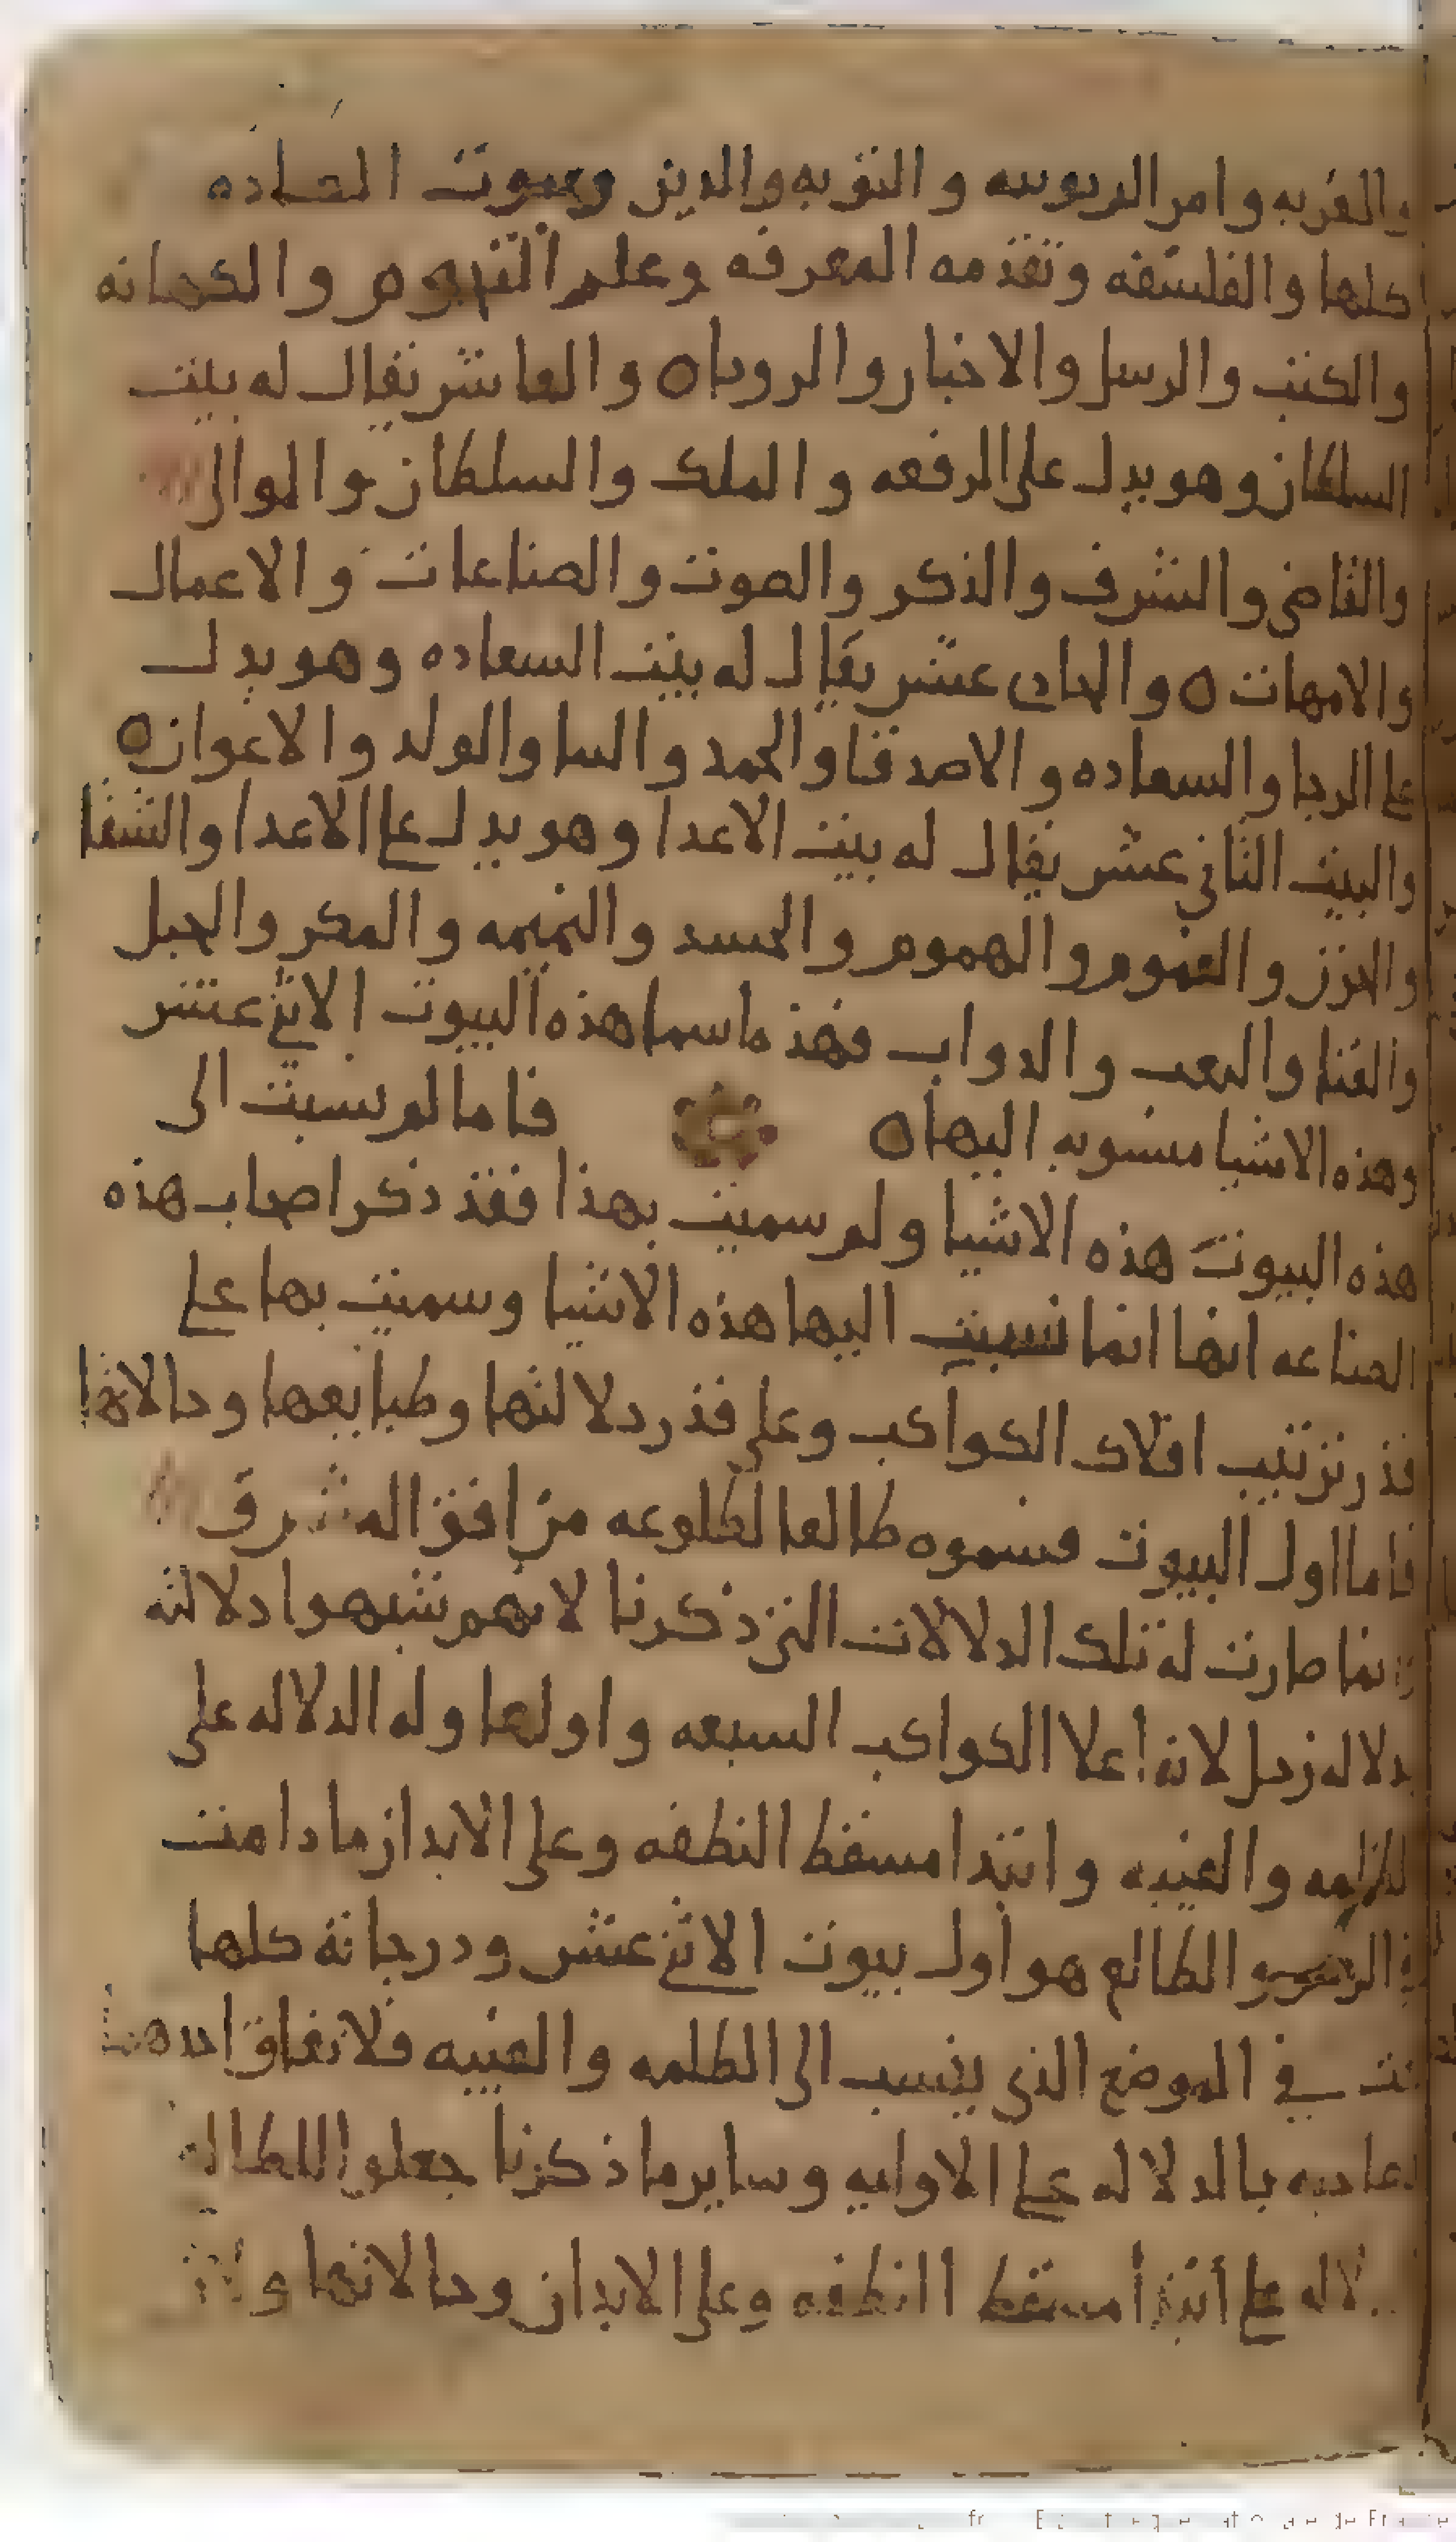 والغربه وامر الربوبيه والنوبه والدين وبيوت العباده
كلها والفلسفه وتقدمه المعرفه وعلم النجوم والكهانه
والكتب والرسل والاخبار والرويا ه والعاشر يقال له بيت
السلطان وهو يدل على الرفعه والملك والسلطان والوالى
والقاضى والشرف والذكر والصوت والصناعات والاعمال
والامهات ه والحادى عشر يقال له بيت السعاده وهو يدل
على الرجا والسعاده والاصدقا والحمد والثنا والولد والاعوان ه
والبيت الثاني عشر يقال له بيت الاعدا وهو يدل على الاعدا والشقا
والحزن والغموم والهموم والحسد والنميمه والمكر والحيل
والعنا والتعب والدواب فهذه اسما هذه البيوت الاثنى عشر
وهذه الاشيا منسوبه اليها ه فاما لم نسبت الى
هذه البيوت هذه الاشيا ولم سميت بهذا فقد ذكر اصحاب هذه
الصناعه انها انما نسبت اليها هذه الاشيا وسميت بها على
قدر ترتيب افلاك الكواكب وعلى قدر دلالتها وطبايعها وحالاتها
فاما اول البيوت فسموه طالعا لطلوعه من افق المشرق
وانما صارت له تلك الدلالات التى ذكرنا لانهم شبهوا دلالته
بدلاله زحل لانه اعلا الكواكب السبعه واولها وله الدلاله على
الظلمه والغيبه وابتدا مسقط النطفه وعلى الابدان ما دامت
في الرحم والطالع هو اول بيوت الاثنى عشر ودرجاته كلها
تحت في الموضع الذى ينسب الى الظلمه والغيبه فلاتفاق احدهما
لصاحبه بالدلاله على الاوليه وساير ما ذكرنا جعلوا للطالع
دلاله على ابتدا مسقط النطفه وعلى الابدان وحالاتها